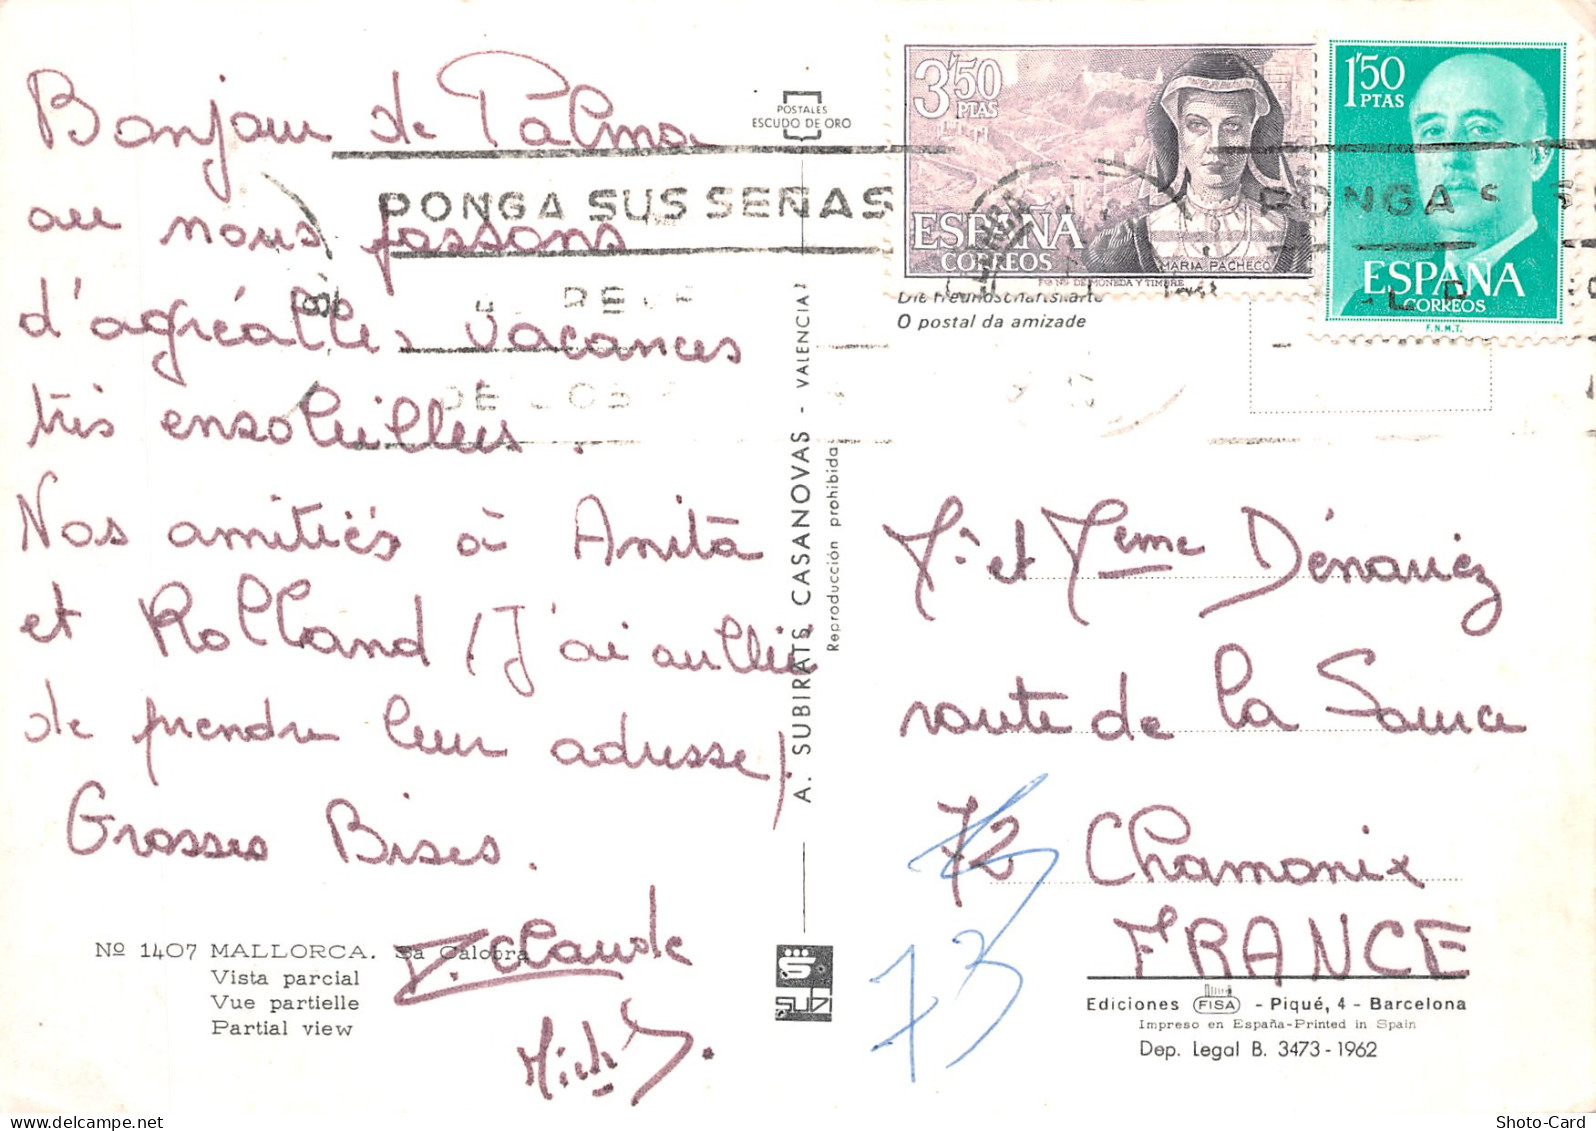 Bonjour de Palma
ou nous passons
d'agréables vacances
très ensoleillées.
Nos amitiés à Anita
et Rolland (J'ai oublié
de prendre leur adresse).
Grosses Bises.
J. Claude
Mich
Nº 1407 MALLORCA. Sa Calobra
Vista parcial
Vue partielle
Partial view
POSTALES
ESCUDO DE ORO
PONGA SUS SEÑAS
A. SUBIRATS CASANOVAS - VALENCIA
Reproducción prohibida
SUBI
3'50
PTAS
ESPAÑA
CORREOS
MARIA PACHECO
F. N. DE MONEDA Y TIMBRE
1'50
PTAS
ESPAÑA
CORREOS
F.N.M.T.
PONGA S
Die Freundschaftskarte
O postal da amizade
Mr et Mme Dénariez
route de la
72 Chamonix
73
FRANCE
Ediciones FISA - Piqué, 4 - Barcelona
Impreso en España-Printed in Spain
Dep. Legal B. 3473-1962
Shoto-Card